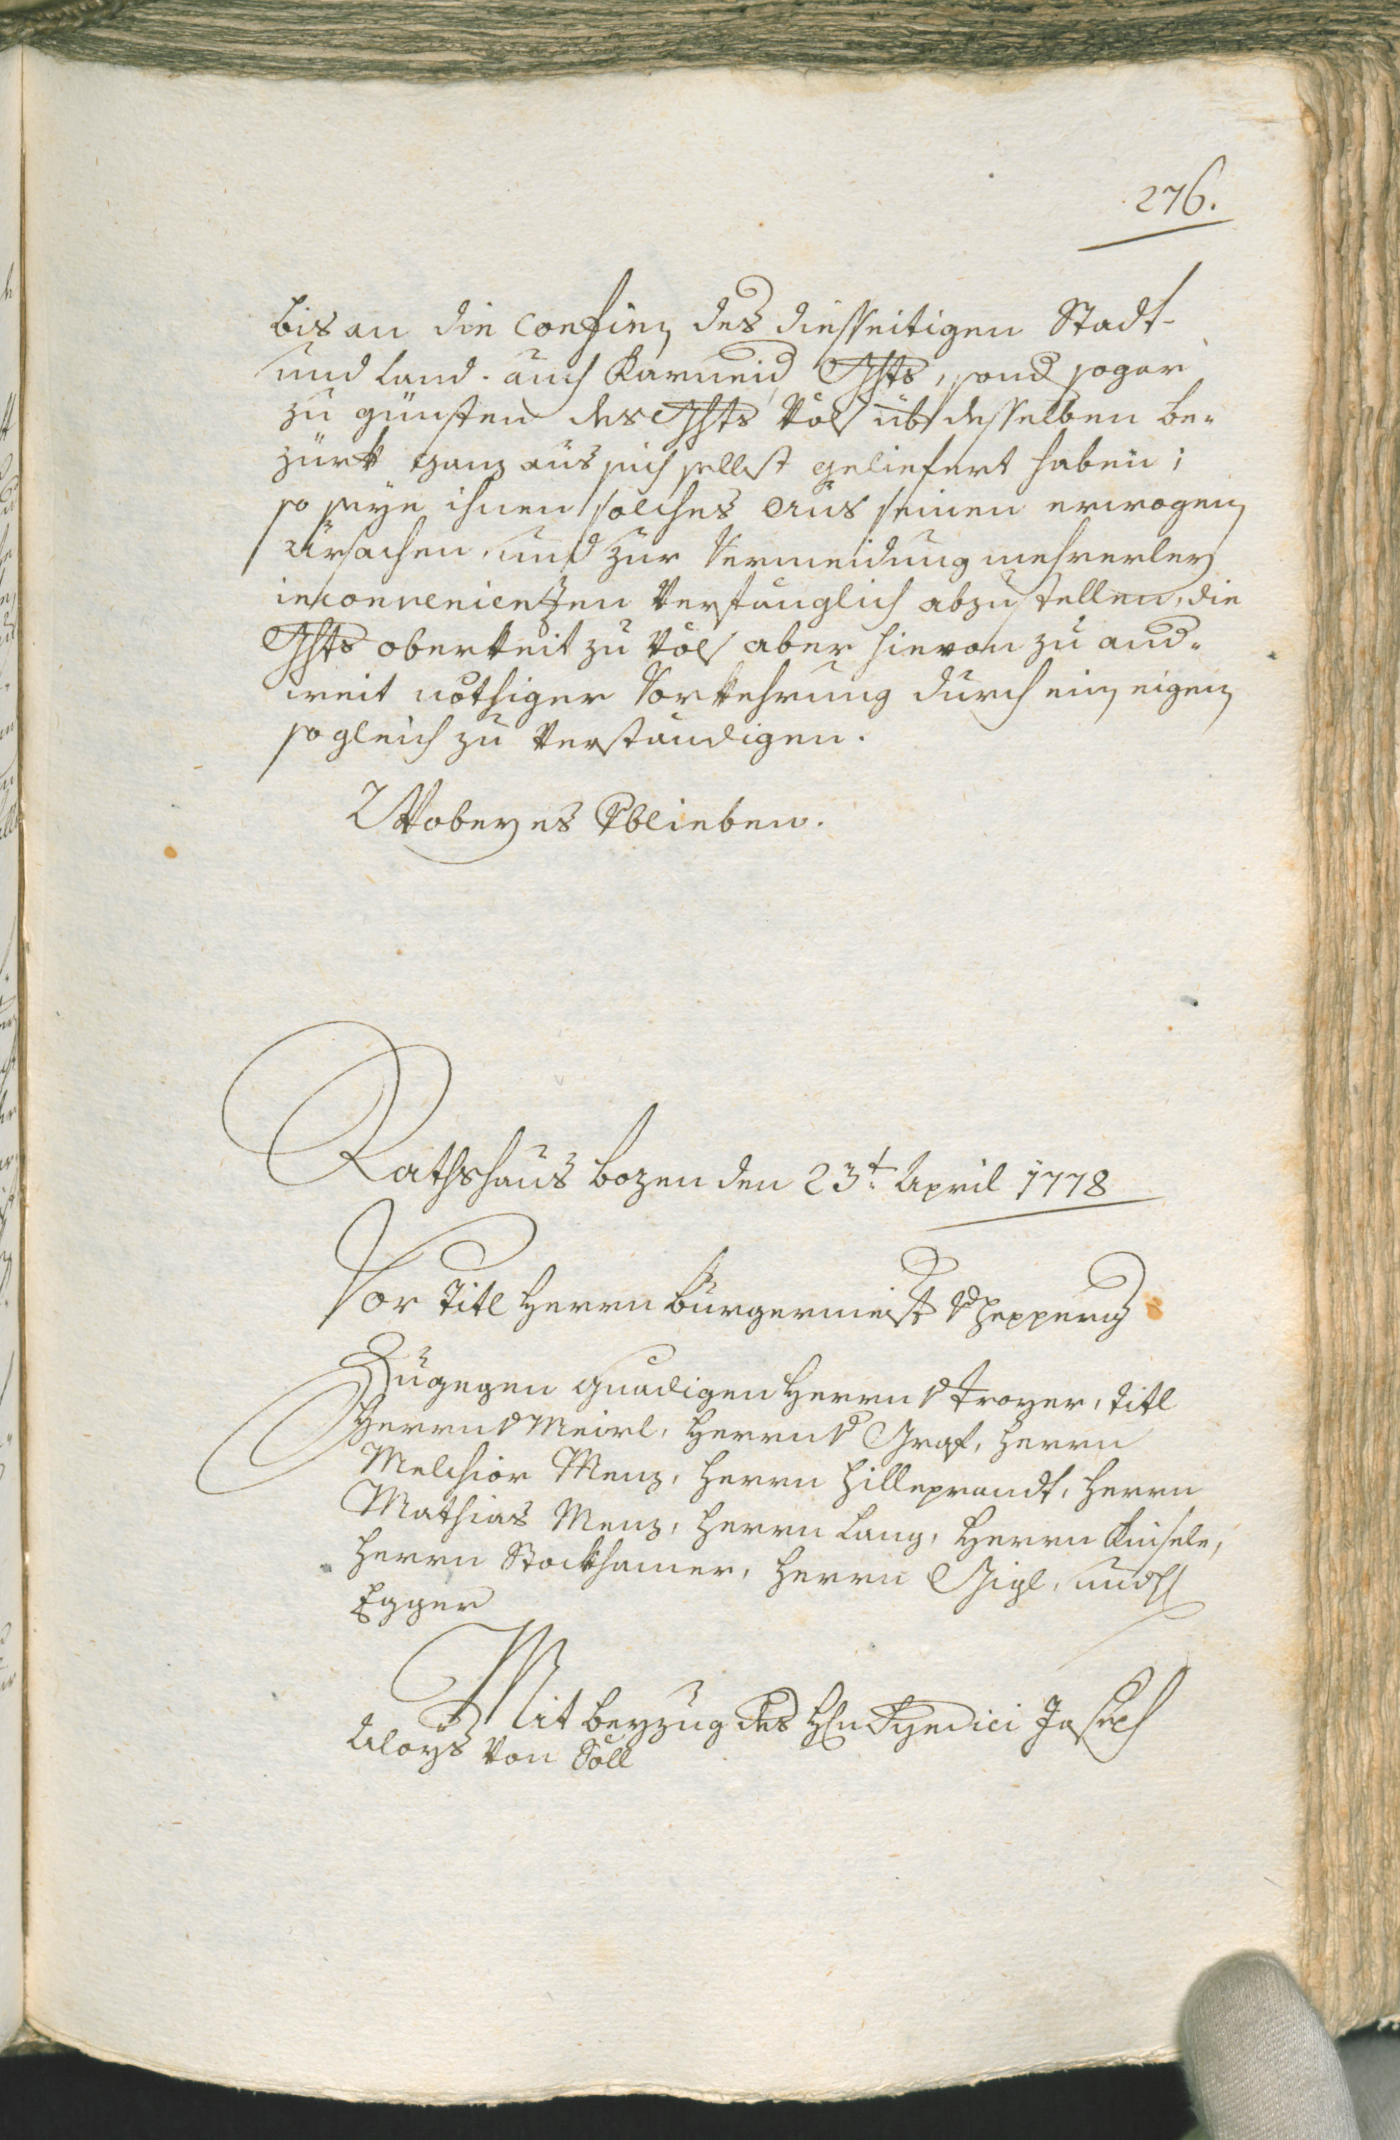 276.
bis an die Confinen des diesseitigen Stadt-
und Land- auch Karneid Ghts, sond sogar
zu günsten des Ghts Völs üb desselben be-
zürk ganz aus sich selbst geliefert haben;
so seye ihnen solches aus seinen erwogen
Ursachen, und zur Vermeidung mehrerley
inconvenienzen Verfänglich abzustellen, die
Ghts oberkeit zu Völs aber hievon zu and-
weit nöthiger Vorkehrung durch ein eigen
sogleich zu Verständigen.
Wobey es Vblieben.
Rathshaus Bozen den 23t April 1778
Vor Titl Herrn Bürgermeist v
Zugegen gnädigen Herrn v Troyer, Titl
Herrn v Meirl, Herrn v Graf, Herrn
Melchior Menz, Herrn Hilleprandt, Herrn
Mathias Menz, Herrn Lang, Herrn Kinsele,
Herrn Stockhamer, Herrn Gigl, und H
Egger
Mit beyzug des Hn Syndici Joseph
Aloys Von Söll